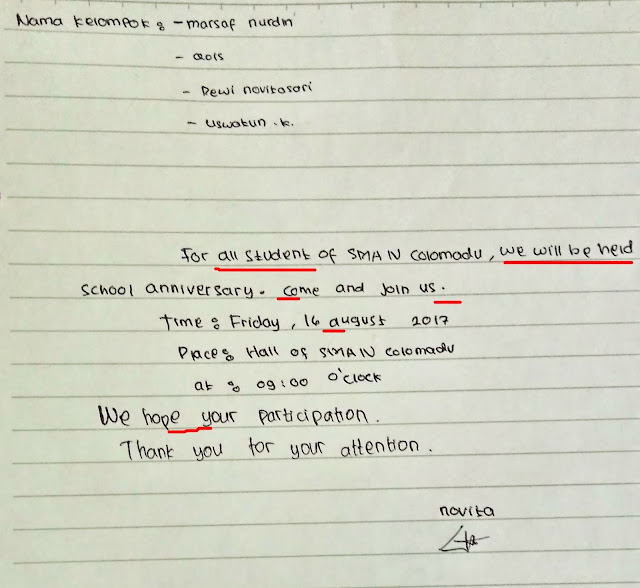 Nama Kelompok : - marsaf nurdin
- aois
- Dewi novitasari
- uswatun .k.
For all student of SMA N colomadu, we will be held
school anniversary. come and join us.
Time : Friday, 16 august 2017
Place : Hall of SMA N colomadu
at : 09:00 O'clock
We hope your participation.
Thank you for your attention.
novita